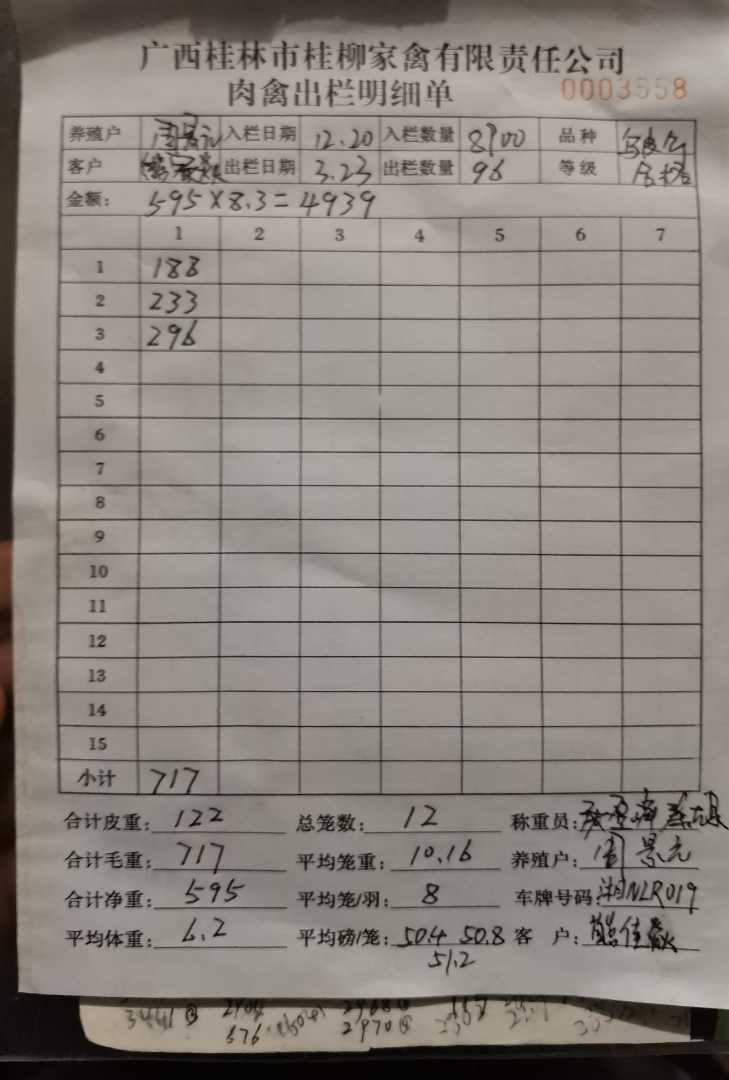 广西桂林市桂柳家禽有限责任公司
肉禽出栏明细单 0003558
养殖户 周景元 入栏日期 12.20 入栏数量 8900 品种
客户 出栏日期 3.23 出栏数量 96 等级 合格
金额: 595×8.3=4939
1 2 3 4 5 6 7
1 188
2 233
3 296
4
5
6
7
8
9
10
11
12
13
14
15
小计 717
合计皮重: 122 总笼数: 12 称重员:
合计毛重: 717 平均笼重: 10.16 养殖户: 周景元
合计净重: 595 平均笼/羽: 8 车牌号码: 湘NLR019
平均体重: 6.2 平均磅/笼: 50.4 50.8 客 户: 熊佳
51.2
3441 2904 2968
576 2970